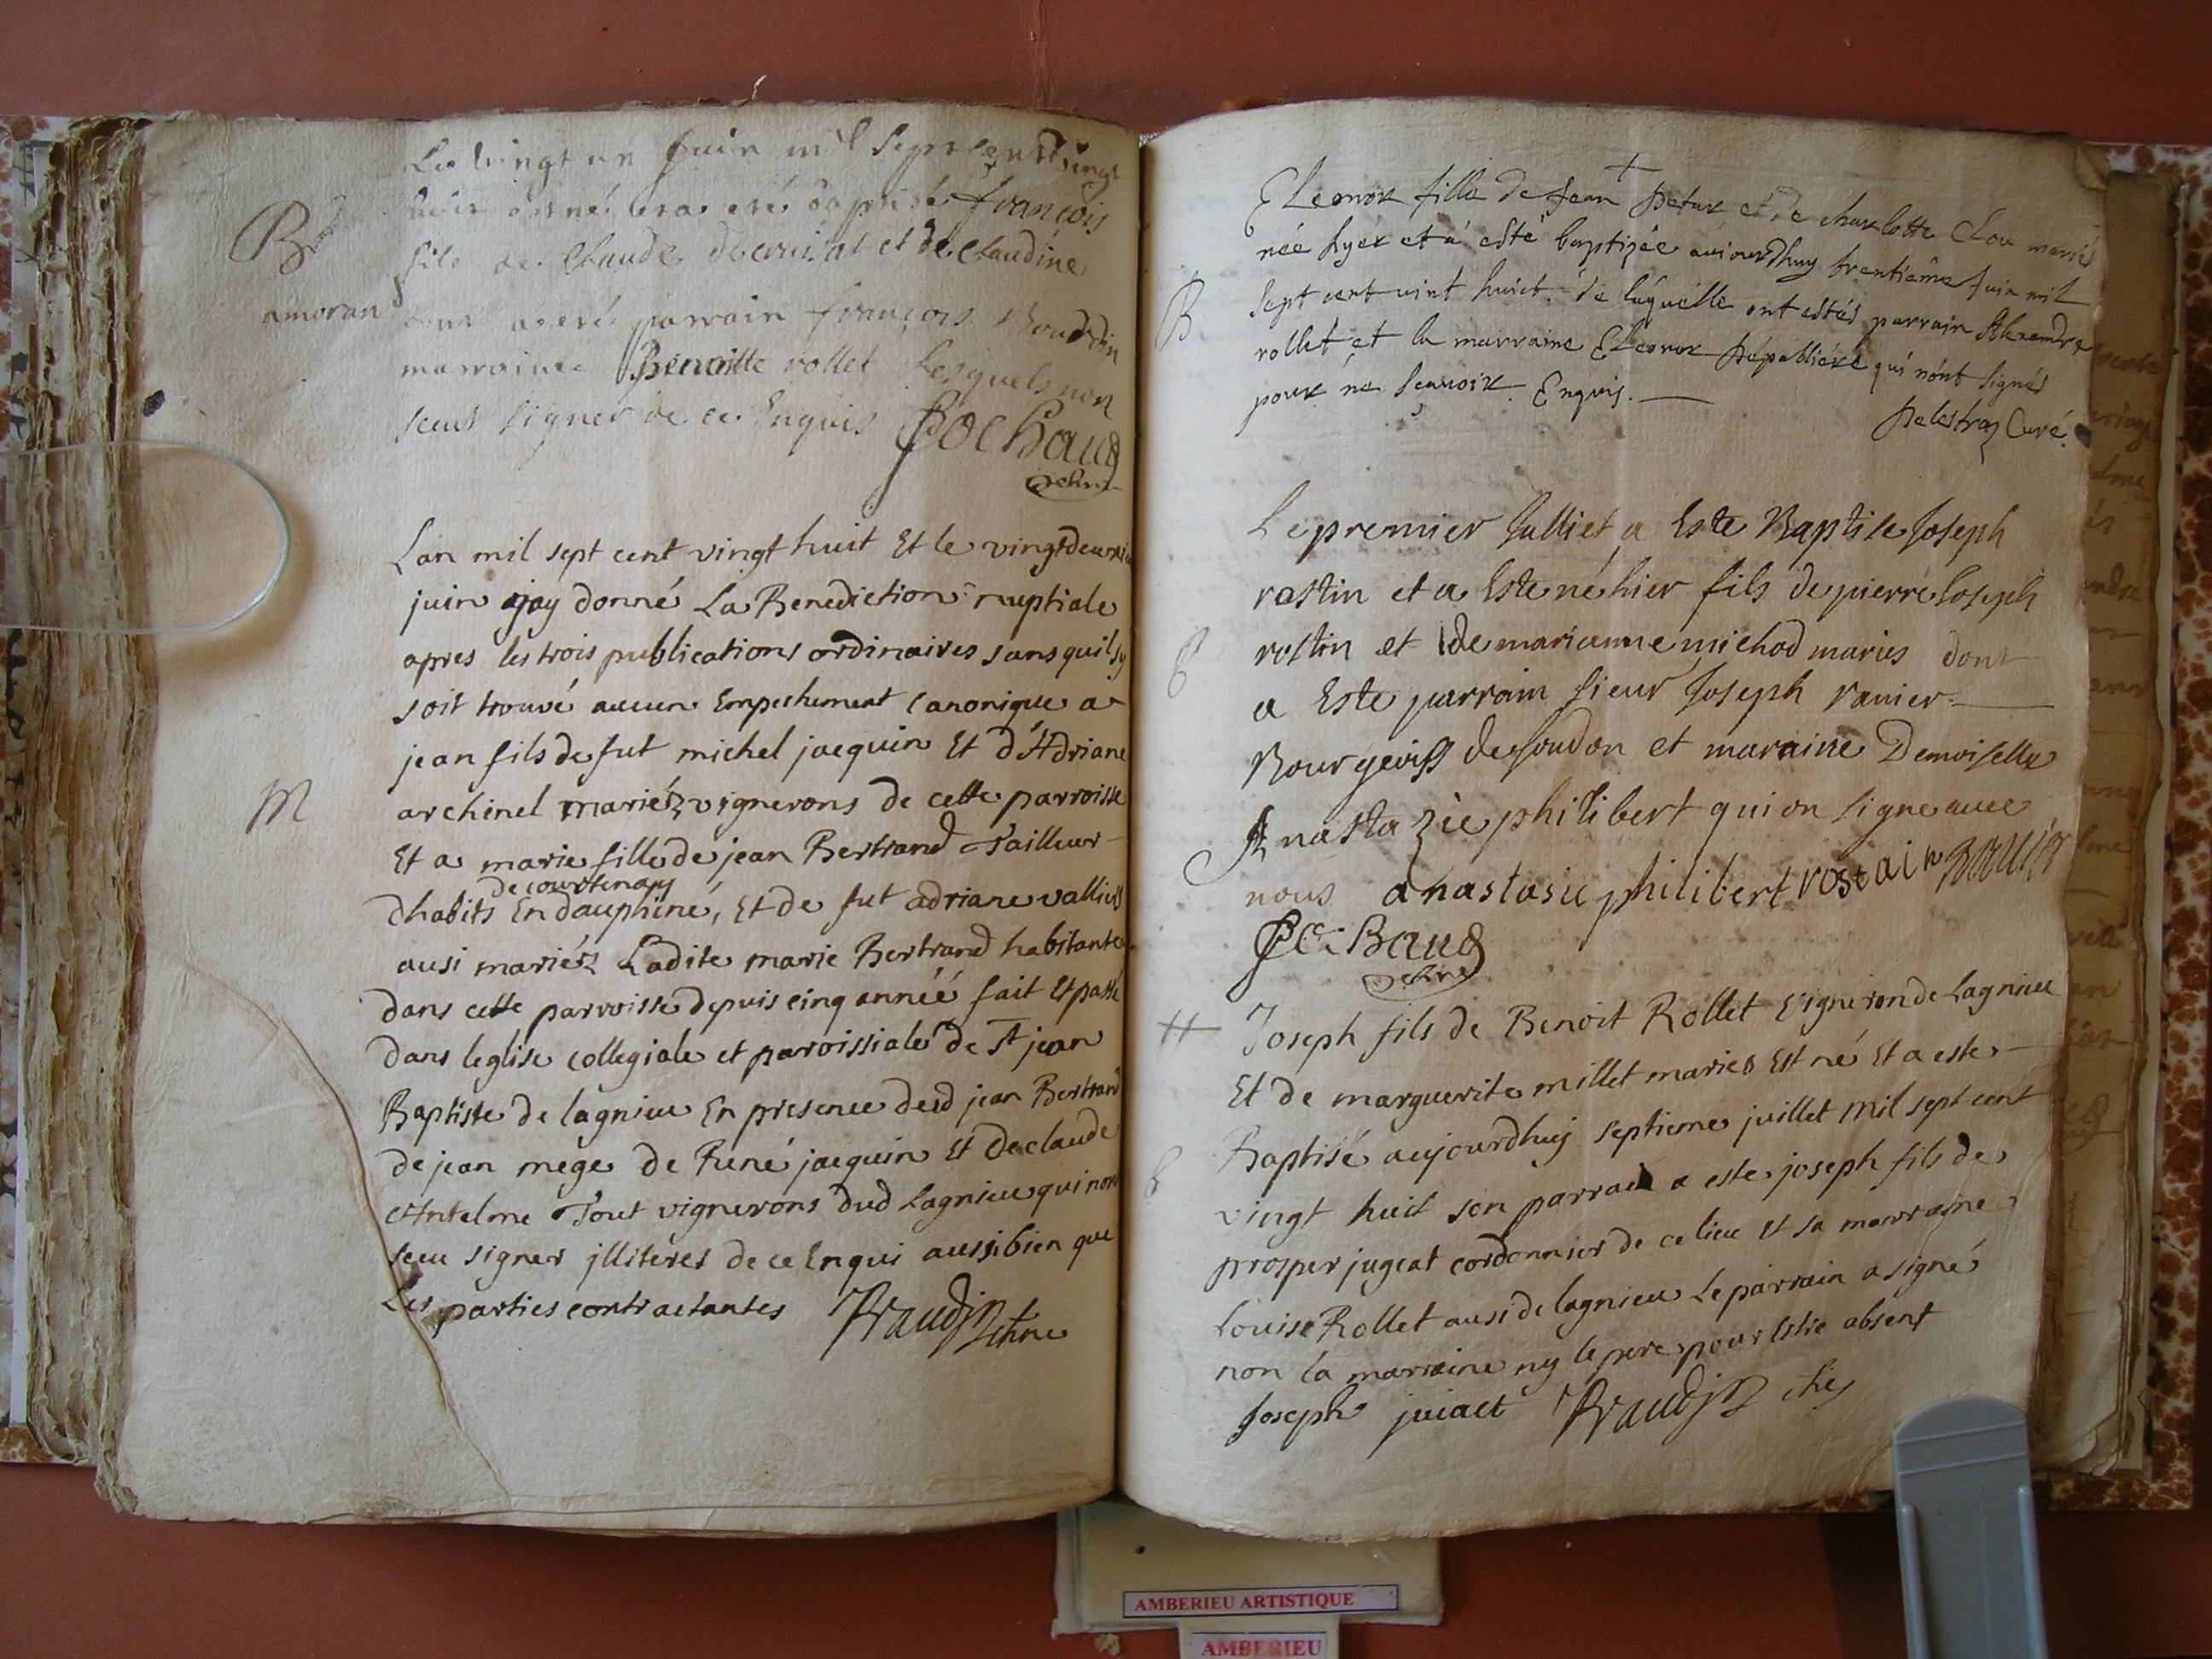 Le vingt un Juin mil sept cent vingt
huit est né et a eté baptisé françois
B
fils de Claude et de Claudine
amoran dont a eté parrain françois
marraine Benoitte rollet Lesquels non
sceut signer de ce Enquis
Lan mil sept cent vingt huit Et le vingtdeuxie
juin jay donné La Benediction nuptiale
apres les trois publications ordinaires sans quil sy
soit trouvé aucun Empechement Canonique a
jean fils de fut michel jacquin Et d'Adriane
M
archinel mariéz vignerons de cette parroisse
Et a marie fille de jean Bertrand Tailleur
de courtenay
dhabits En dauphiné, Et de fut adriane valliers
ausi mariéz Ladite marie Bertrand habitante
dans cette parroisse depuis cinq année fait Et passé
dans leglise collegiale et paroissiale de St jean
Baptiste de lagnieu En presence dud jean Bertrand
de jean mege de René jacquin Et de claude
Antelme Tout vignerons dud Lagnieu qui non
sceu signer jlliteres de ce Enqui aussi bien que
Les parties contractantes
Eleonor fille de Jean Detar et de charlotte Clou mariés
née hyer et a esté baptizée aujourdhuy trentiéme Juin mil
B
sept cent vint huict. de laquelle ont estés parrain Alexandre
rollet et la marraine Eleonor qui nont signés
pour ne scauoir Enquis.
Delestraz Curé.
Le premier Julliet a Este Baptise Joseph
rostin et a Este né hier fils de pierre Joseph
B
rostin et de marianne michod maries dont
a Este parrain sieur Joseph ranier
Bourgeois de Loudon et maraine Demoiselle
Anastazie philibert qui on signe auec
nous anastasie philibert rostain
Joseph fils de Benoit Rollet Vigneron de Lagnieu
Et de marguerite millet maries Est né Et a este
B
Baptisé aujourdhuy septieme juillet mil sept cent
vingt huit son parrain a este joseph fils de
prosper jugeat cordonnier de ce lieu et sa marraine
Louise Rollet ausi de lagnieu Le parrain a signé
non la marraine ny le pere pour Estre absent
Joseph
AMBERIEU ARTISTIQUE
AMBERIEU